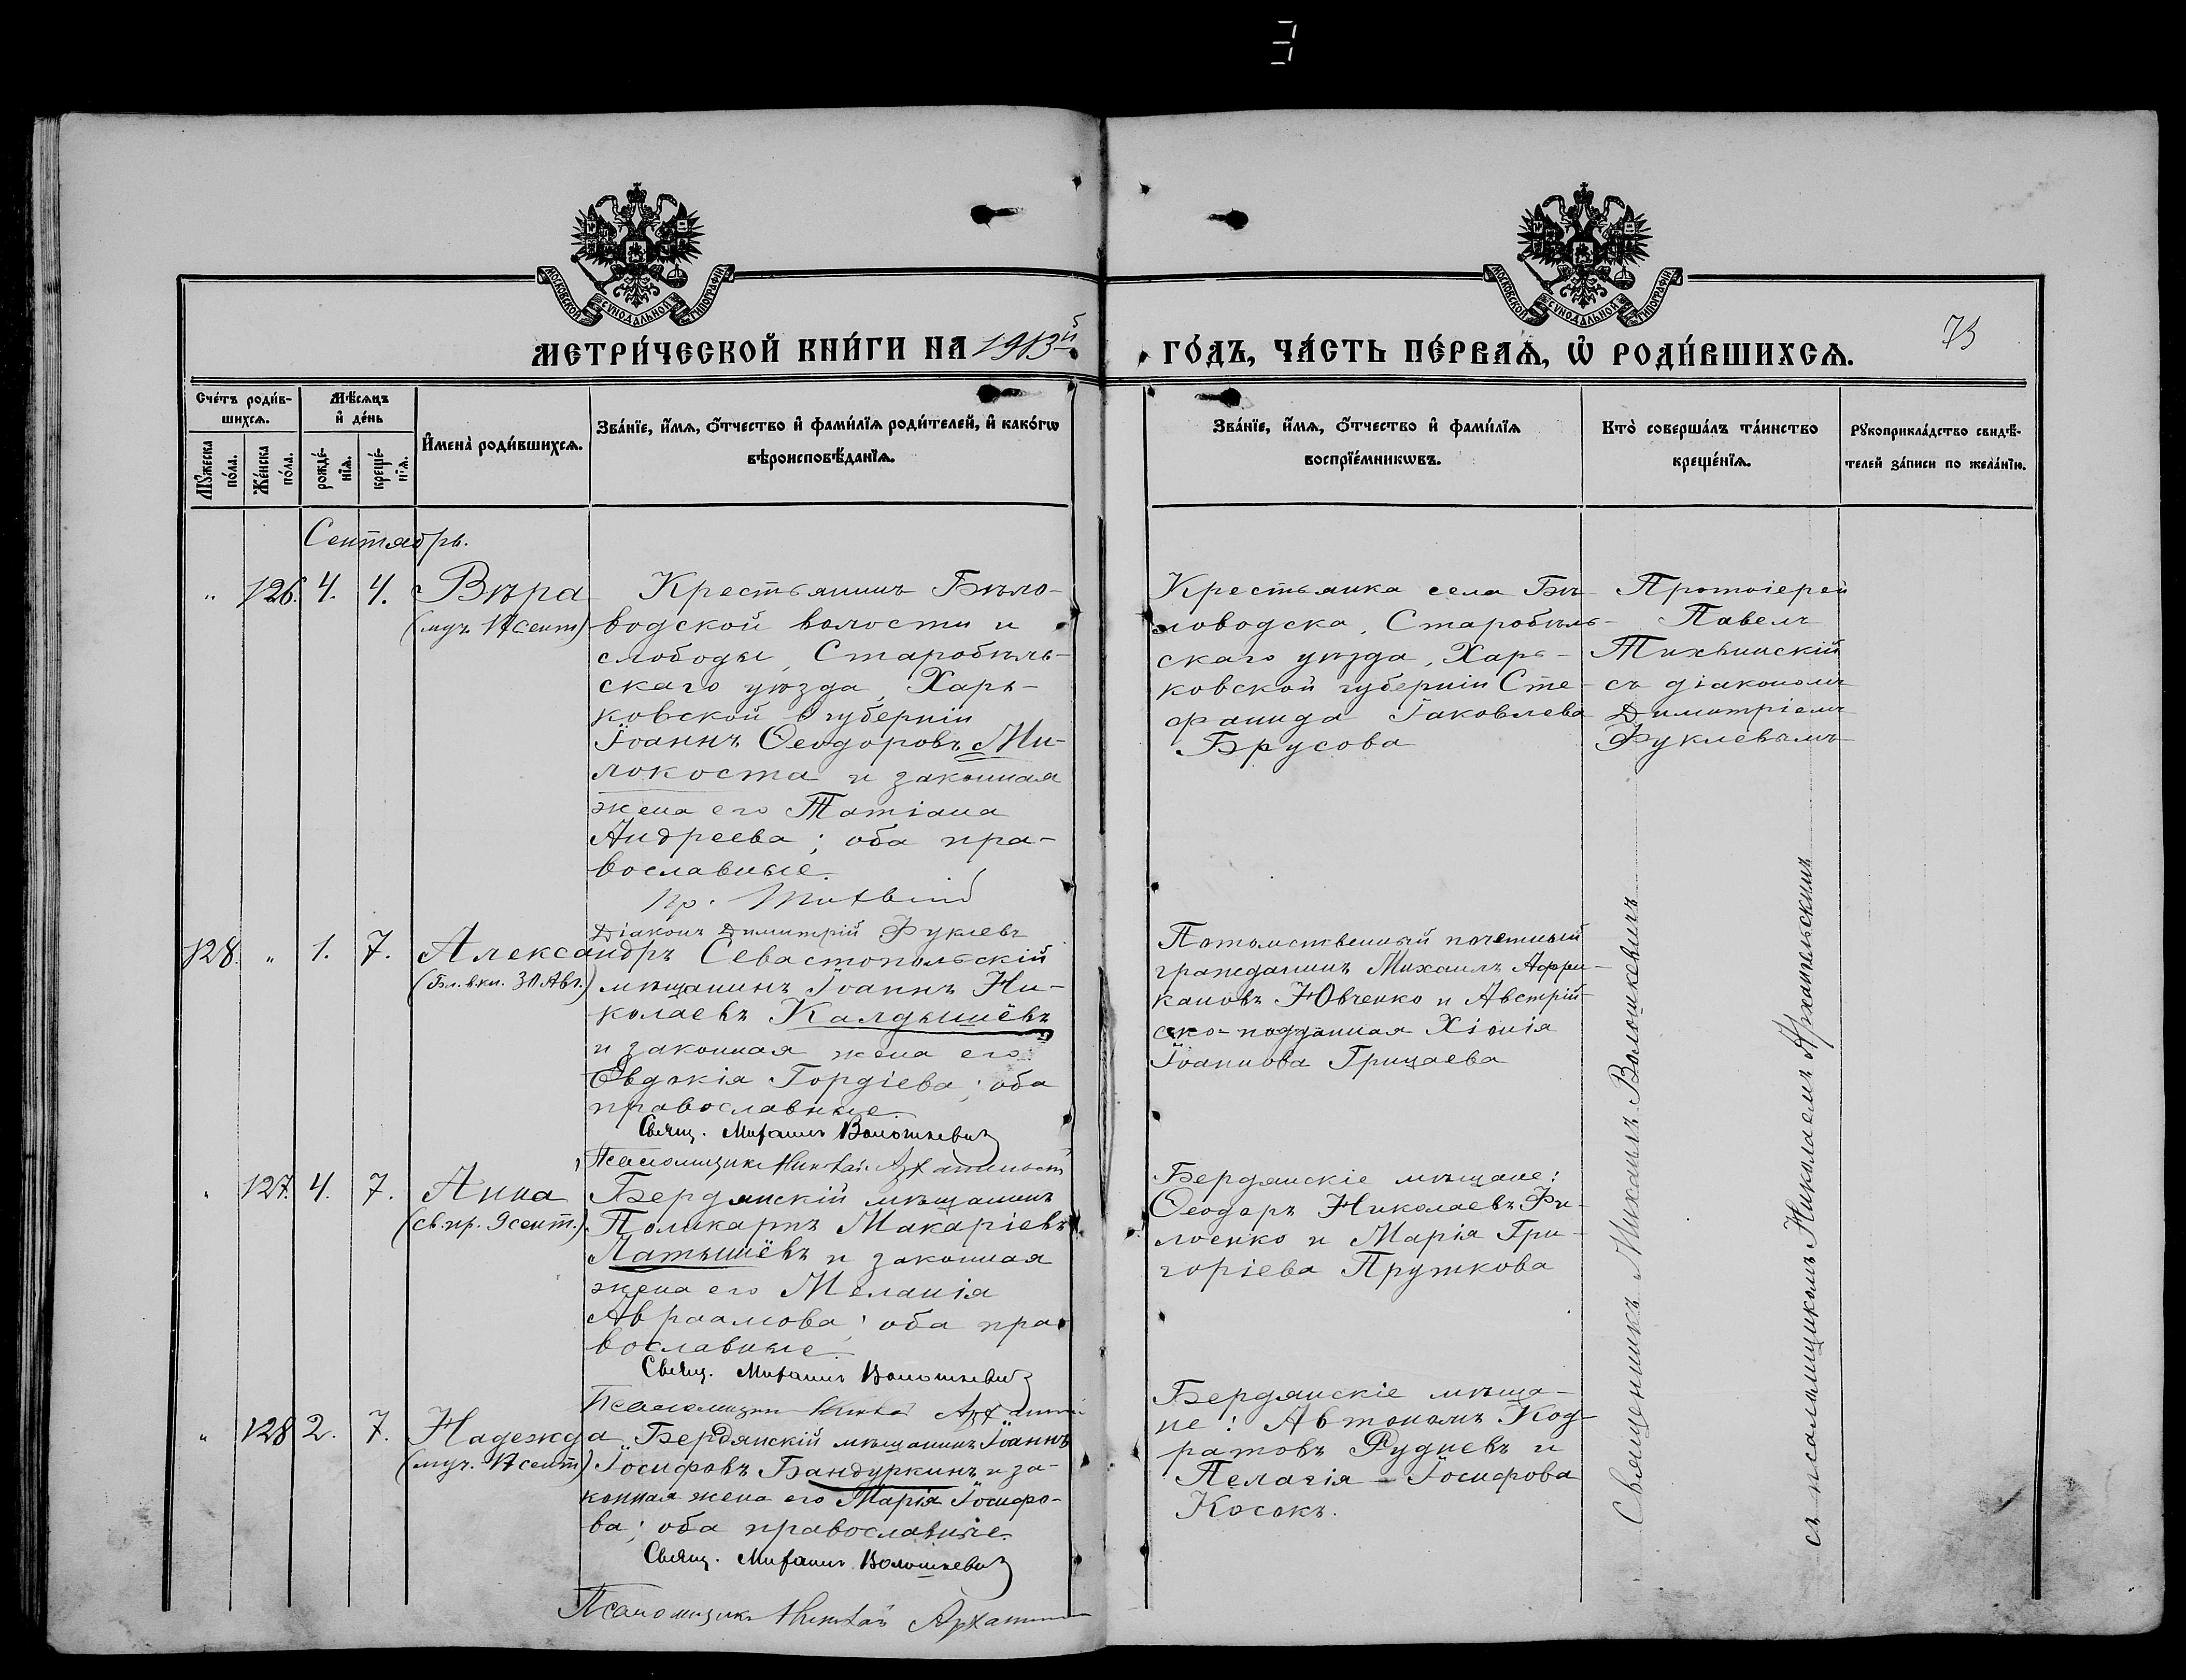 МОСКОВСКОЙ СѴНОДАЛЬНОЙ ТИПОГРАФІИ
МОСКОВСКОЙ СѴНОДАЛЬНОЙ ТИПОГРАФІИ
МЕТРИ́ЧЕСКОЙ КНИ́ГИ НА 1913й
ГО́ДЪ, ЧА́СТЬ ПЕ́РВАѦ, Ѡ РОДИ́ВШИХСѦ.
Счéтъ роди́в-
шихсѧ.
Мꙋжеска
по́ла.
Же́нска
по́ла.
Мѣ́сѧцъ
и҆ де́нь
рожде́-
нїѧ.
креще́-
нїѧ.
И҆мена̀ роди́вшихсѧ.
Зва́нїе, и҆́мѧ, ѻ҆́тчество и҆ фами́лїѧ роди́телей, и҆ како́гѡ
вѣроисповѣ́данїѧ.
Зва́нїе, и҆́мѧ, ѻ҆́тчество и҆ фами́лїѧ
воспрїе́мникѡвъ.
Кто̀ соверша́лъ та́инство
креще́нїѧ.
Рꙋкоприкла́дство свидѣ́-
телей за́писи по жела́нїю.
Сентябрь.
" 126. 4. 4. Вѣра
(муч. 17 сент)
Крестьянинъ Бѣло-
водской волости и
слободы, Старобѣль-
скаго уѣзда, Харь-
ковской губерніи
Іоаннъ Ѳеодоровъ Ми-
локоста и законная
жена его Татіана
Андреева; оба пра-
вославные.
Діаконъ Димитрій Фуклевъ
Крестьянка села Бѣ-
ловодска, Старобѣль-
скаго уѣзда, Харь-
ковской губерніи Сте-
фанида Іаковлева
Брусова
Протоіерей
Павелъ
съ діакономъ
Димитріемъ
Фуклевымъ
128. " 1. 7. Александръ
(Бл. вкн. 30 Авг.)
Севастопольскій
мѣщанинъ Іоаннъ Ни-
колаевъ Калдышёвъ
и законная жена его
Евдокія Гордіева; оба
православные.
Свящ. Михаилъ Волошкевичъ
Псаломщикъ Николай Архангельскій
Потомственный почетный
гражданинъ Михаилъ Афри-
кановъ Ювченко и Австрій-
ско-подданная Хіонія
Іоаннова Грицаева
" 127. 4. 7. Анна
(св. пр. 9 сент.)
Бердянскій мѣщанинъ
Поликарпъ Макаріевъ
Латышёвъ и законная
жена его Меланія
Авраамова; оба пра-
вославные.
Свящ. Михаилъ Волошкевичъ
Псаломщикъ Николай
Бердянскіе мѣщане:
Ѳеодоръ Николаевъ Фи-
лоенко и Марія Гри-
горіева Пруткова
" 128 2. 7. Надежда
(муч. 17 сент)
Бердянскій мѣщанинъ Іоаннъ
Іосифовъ Бандуркинъ и за-
конная жена его Марія Іосифо-
ва; оба православные.
Свящ. Михаилъ Волошкевичъ
Псаломщикъ Николай
Бердянскіе мѣща-
не: Автономъ Код-
ратовъ Рудневъ и
Пелагія Іосифова
Косокъ.
Священникъ Михаилъ Волошкевичъ
съ псаломщикомъ Николаемъ Архангельскимъ